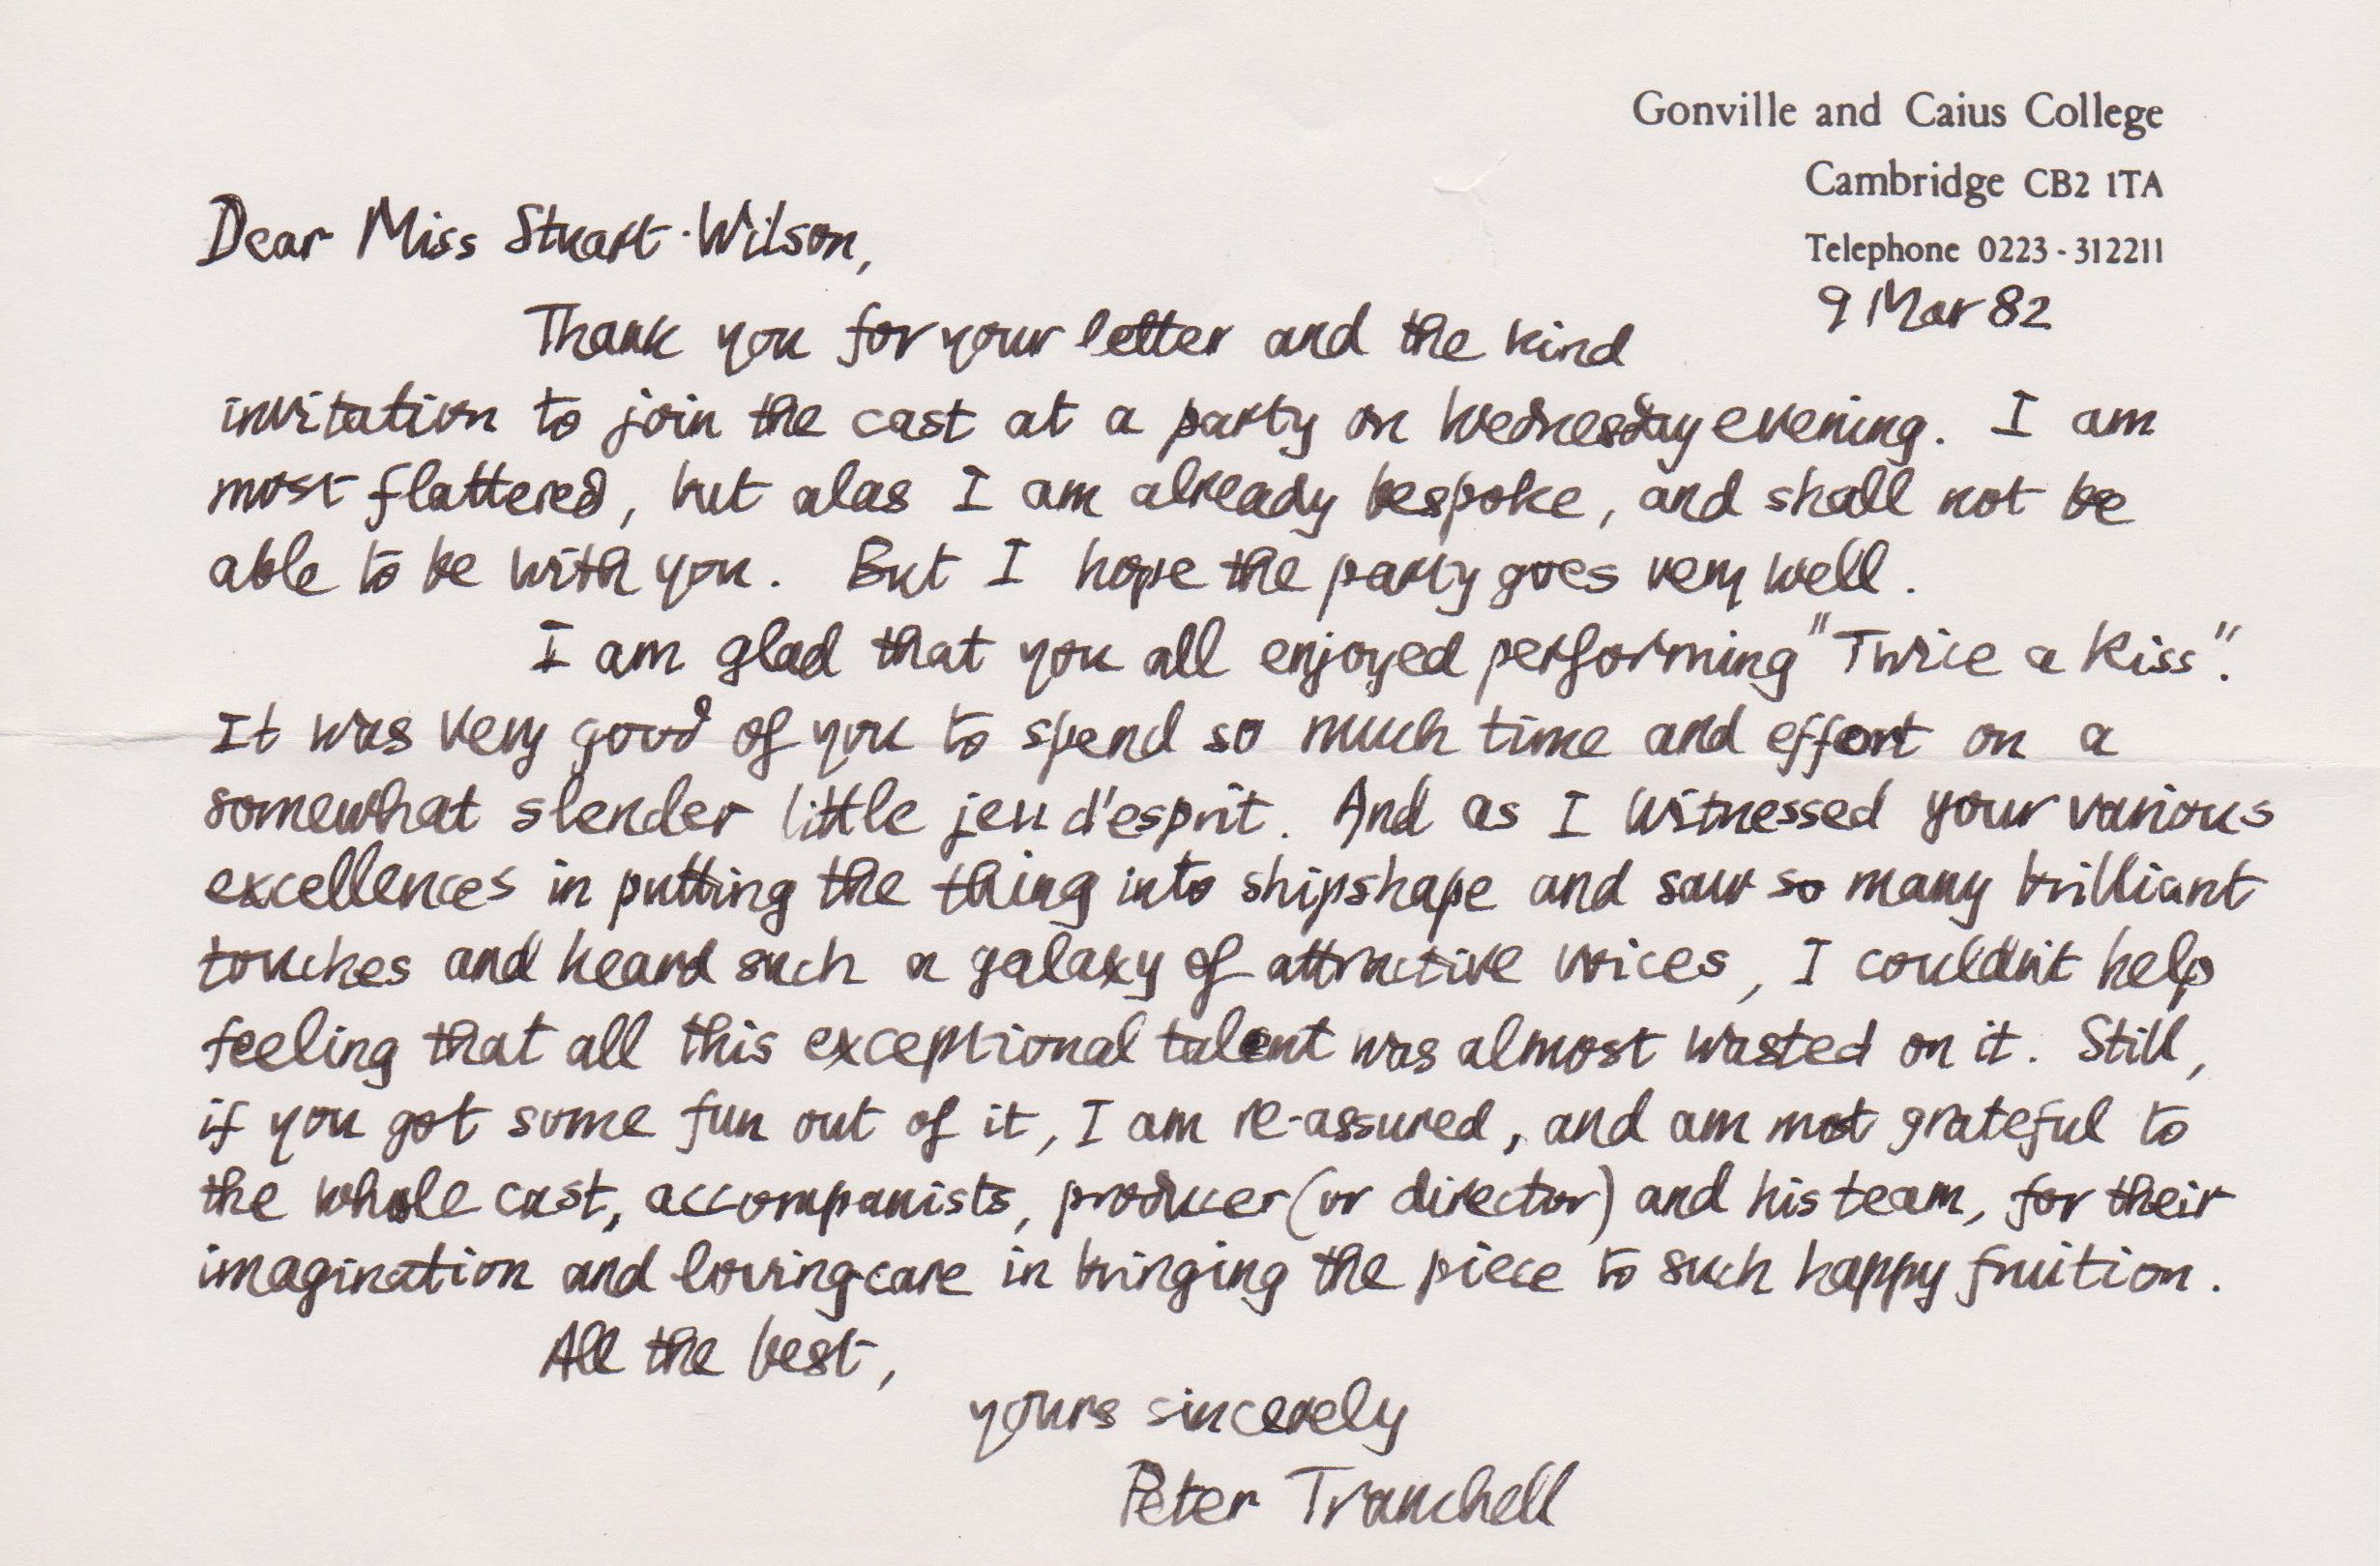 Gonville and Caius College
Cambridge CB2 1TA
Telephone 0223-312211
9 Mar 82
Dear Miss Stuart-Wilson,
Thank you for your letter and the kind
invitation to join the cast at a party on Wednesday evening. I am
most flattered, but alas I am already bespoke, and shall not be
able to be with you. But I hope the party goes very well.
I am glad that you all enjoyed performing "Twice a Kiss".
It was very good of you to spend so much time and effort on a
somewhat slender little jeu d'esprit. And as I witnessed your various
excellences in putting the thing into shipshape and saw so many brilliant
touches and heard such a galaxy of attractive voices, I couldn't help
feeling that all this exceptional talent was almost wasted on it. Still,
if you got some fun out of it, I am re-assured, and am most grateful to
the whole cast, accompanists, producer (or director) and his team, for their
imagination and loving care in bringing the piece to such happy fruition.
All the best,
yours sincerely
Peter Tranchell